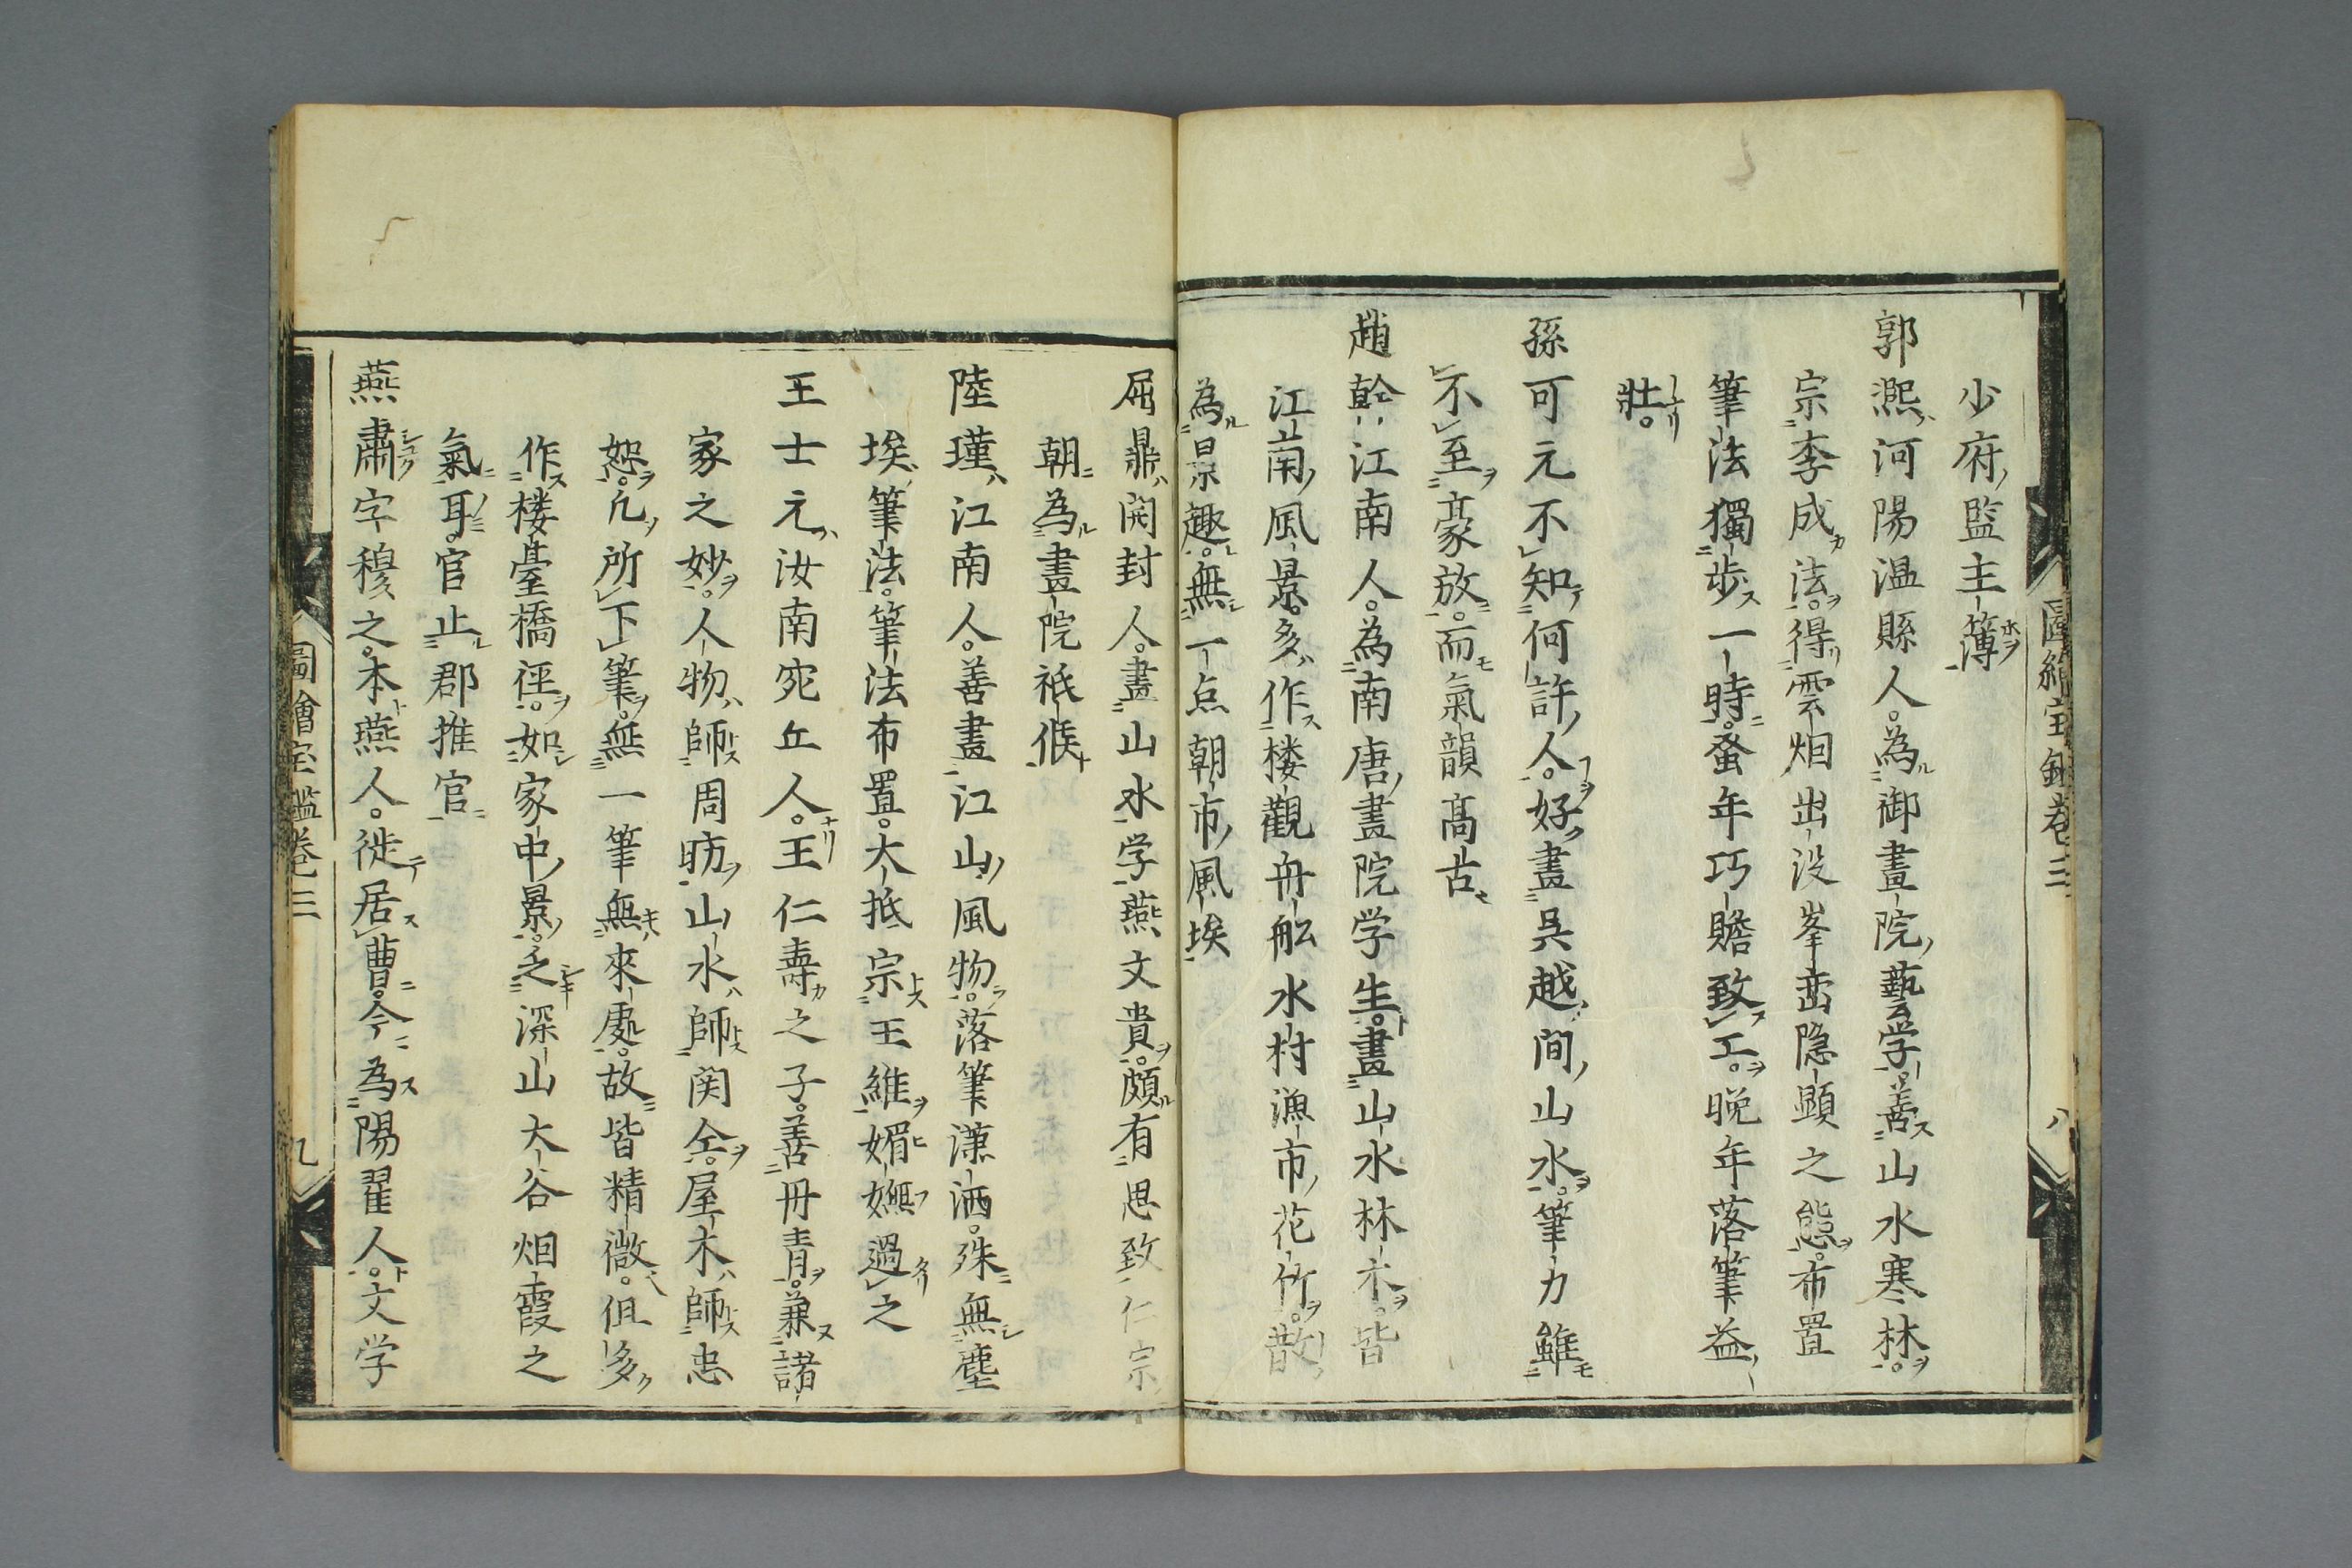 圖繪宝鑑卷三
八
少府監主簿
郭熈河陽温縣人。為御畫院藝学。善山水寒林。
宗李成法。得雲烟出没峯峦隐顕之態。布置
筆法獨歩一時。蚤年巧贍致工。晩年落筆益
壯。
孫可元不知何許人。好畫呉越間山水。筆力雖
不至豪放。而氣韻髙古
趙幹江南人。為南唐畫院学生。畫山水林木。皆
江南風景。多作楼觀舟舩水村漁市花竹。散
為景趣。無一点朝市風埃
屈鼎開封人。畫山水学燕文貴。頗有思致仁宗
朝為畫院祗候
陸瑾江南人。善畫江山風物。落筆潇洒。殊無塵
埃筆法。筆法布置。大抵宗王維媚嫵過之
王士元汝南宛丘人。王仁壽之子。善丹青。兼諸
家之妙。人物師周昉山水師関仝。屋木師忠
恕。凢所下筆。無一筆無來処。故皆精微。但多
作楼臺橋徑。如家中景。乏深山大谷烟霞之
氣耳。官止郡推官
燕肅字穆之。本燕人。徙居曹。今為陽翟人。文学
圖繪宝鑑卷三
九